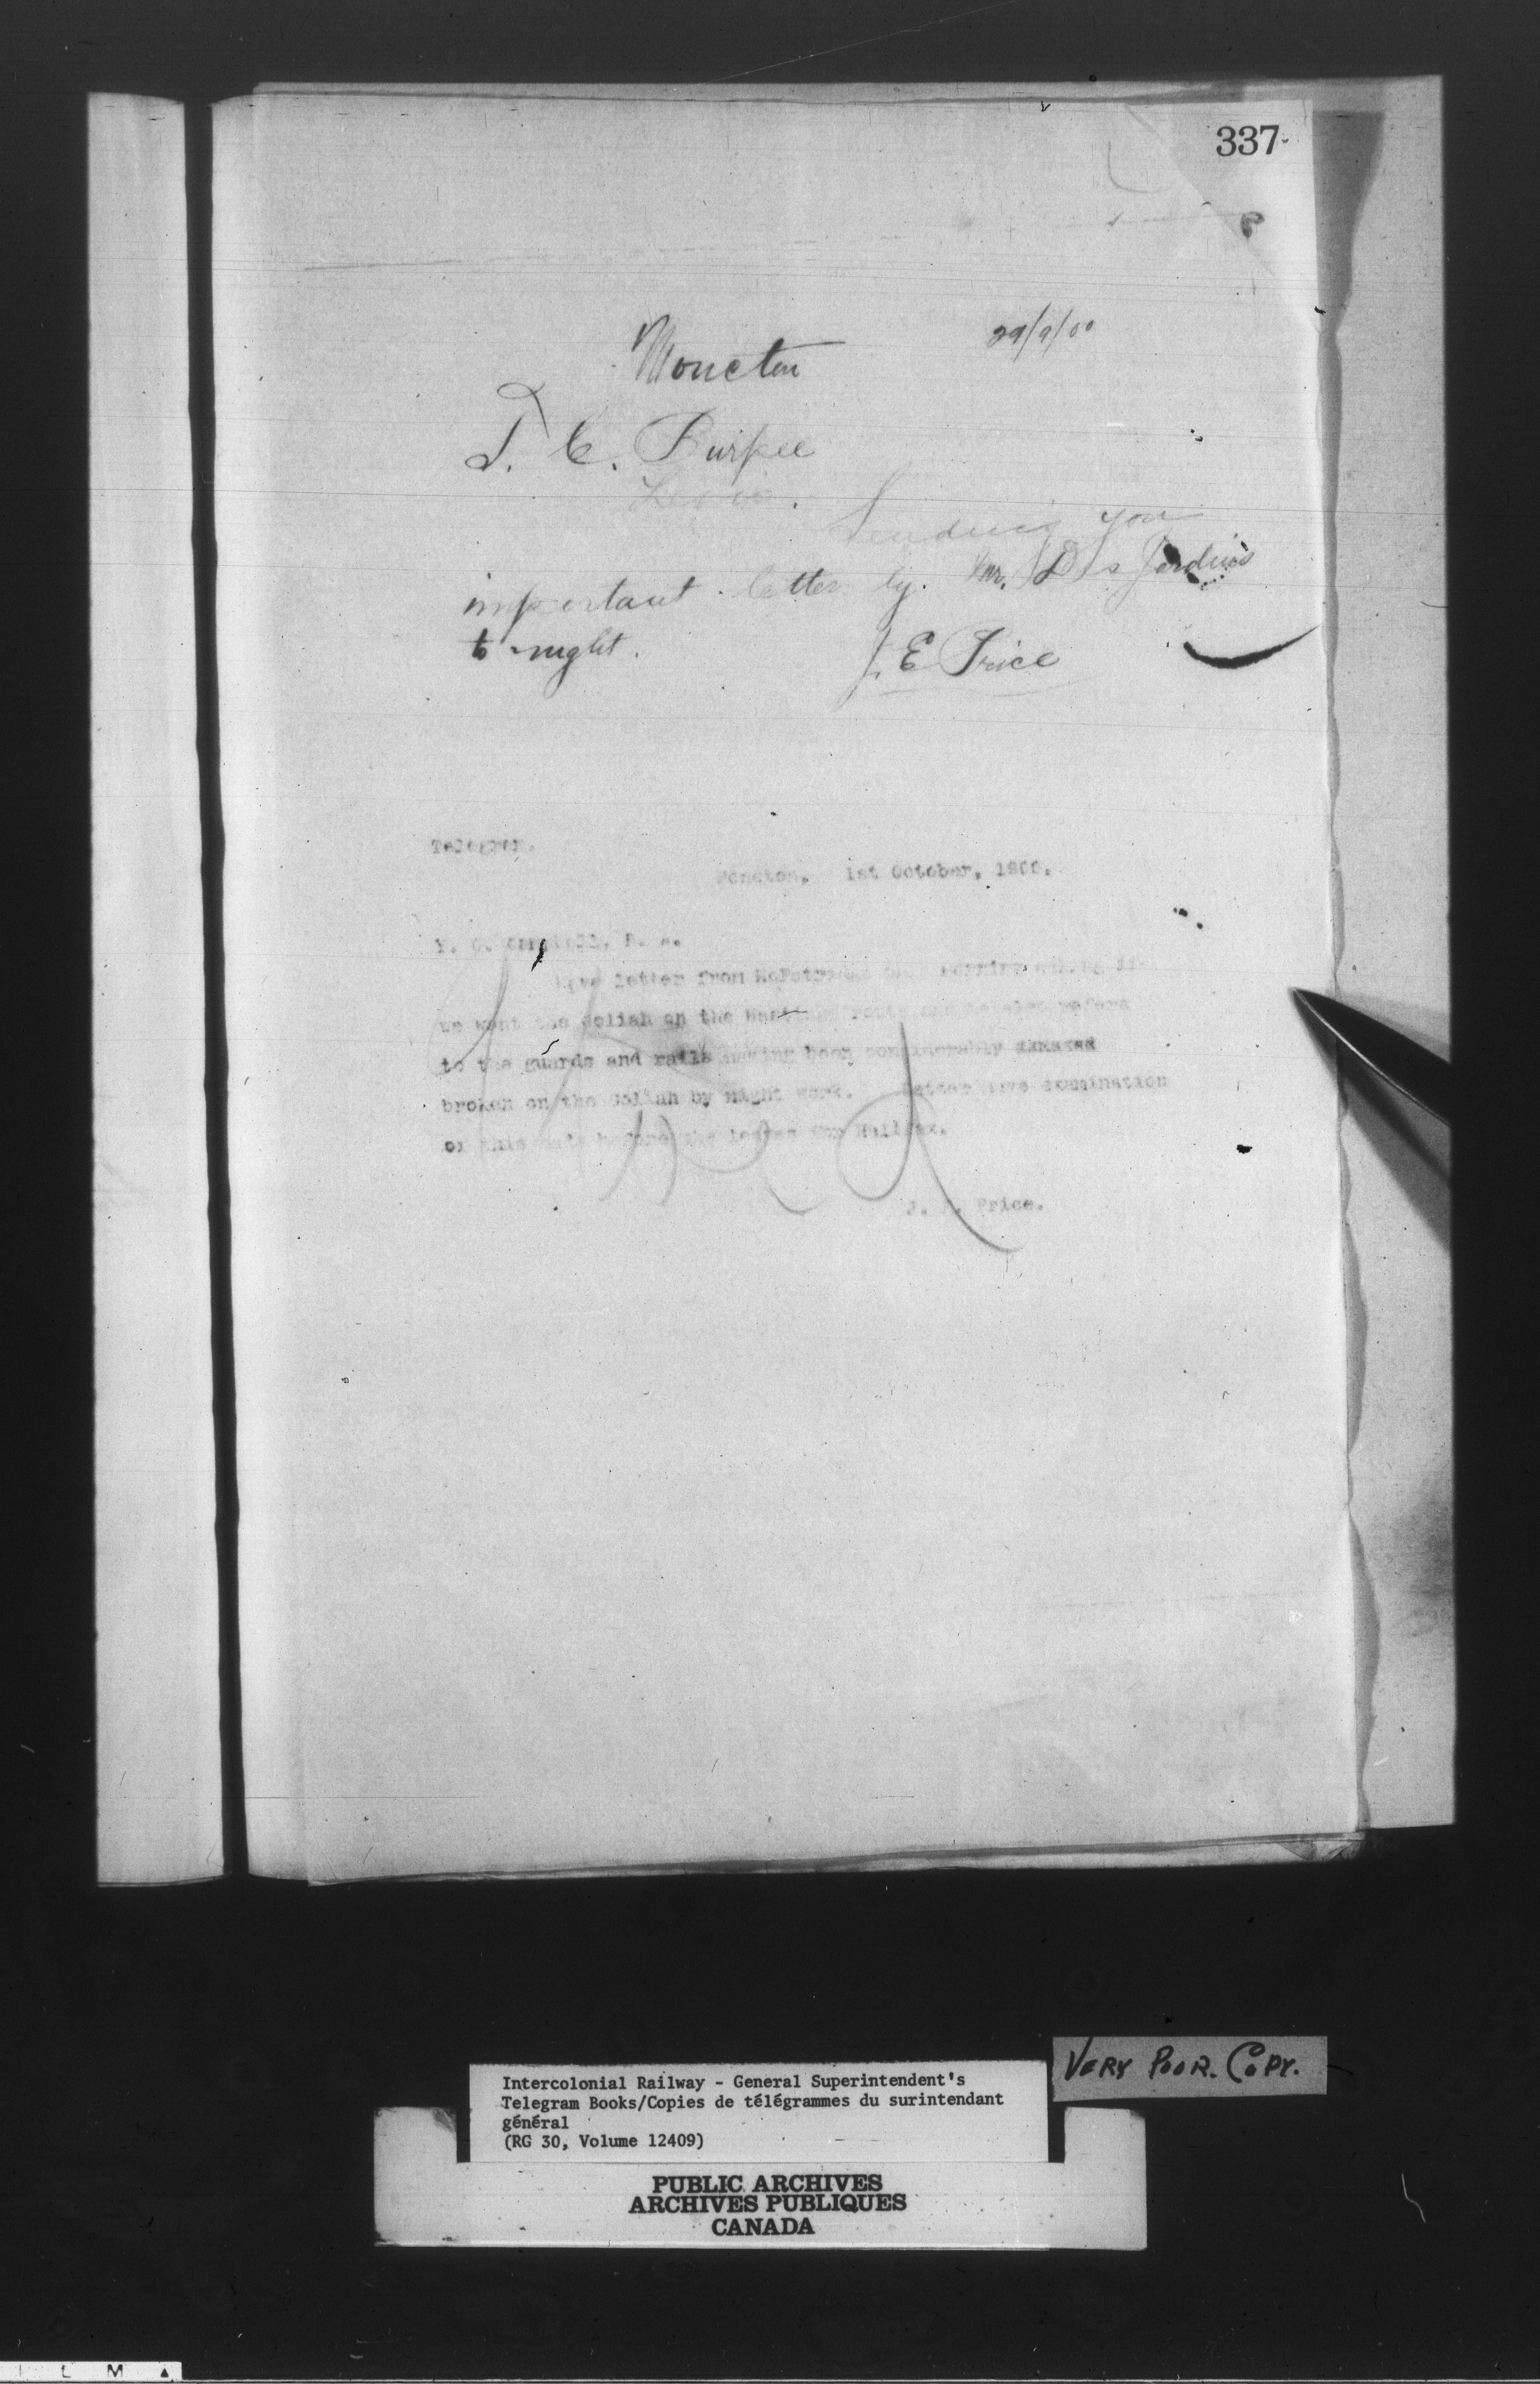 337
Moncton 29/9/00
T. C. Burpee
Levis.
Sending you
important letter by Mr. DesJardins
to night.
J. E Price
Telegram.
Moncton. 1st October, 1900.
Y. C. Campbell,
Have letter from
we want the Goliah on the
to the guards and rails having been considerably
broken on the Goliah by night work. Better have examination
of this made before she leaves for Halifax.
J. E. Price.
VERY POOR. COPY.
Intercolonial Railway - General Superintendent's
Telegram Books/Copies de télégrammes du surintendant
général
(RG 30, Volume 12409)
PUBLIC ARCHIVES
ARCHIVES PUBLIQUES
CANADA
L M